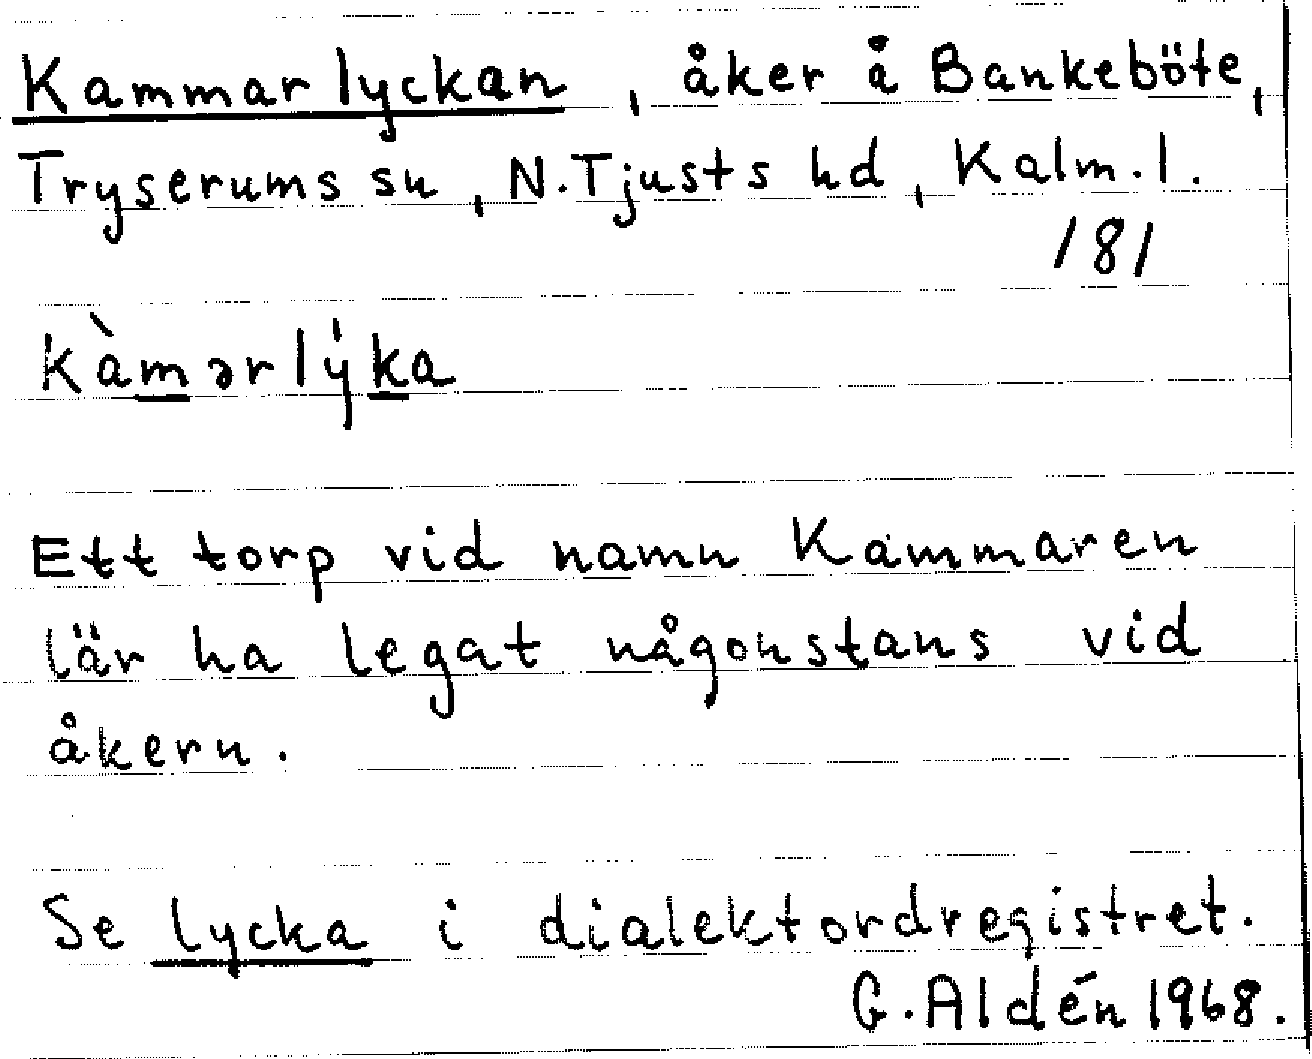 Kammarlyckan, åker å Bankeböte,
Tryserums sn, N. Tjusts hd, Kalm. l.
181
kàmərlýka
Ett torp vid namn Kammaren
lär ha legat någonstans vid
åkern.
Se lycka i dialektordregistret.
G. Aldén 1968.